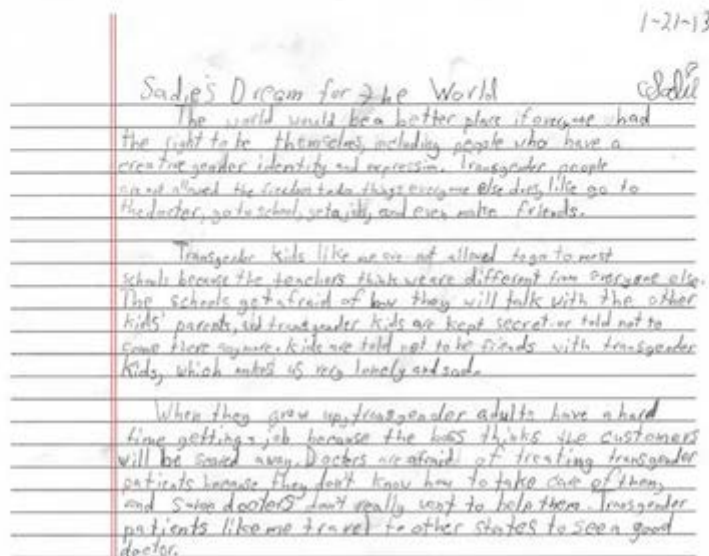 1-21-13
Sadie's Dream for the World
Sadie
The world would be a better place if everyone had
the right to be themselves, including people who have a
creative gender identity and expression. Transgender people
are not allowed the freedom to do things everyone else does, like go to
the docter, go to school, get a job, and even make friends.
Transgender kids like me are not allowed to go to most
schools because the teachers think we are different from everyone else.
The schools get afraid of how they will talk with the other
kids' parents, and transgender kids are kept secret or told not to
come there anymore. Kids are told not to be friends with transgender
kids, which makes us very lonely and sad.
When they grow up, transgender adults have a hard
time getting a job because the boss thinks the customers
will be scared away. Doctors are afraid of treating transgender
patients because they don't know how to take care of them,
and some docters don't really want to help them. Transgender
patients like me travel to other states to see a good
doctor.